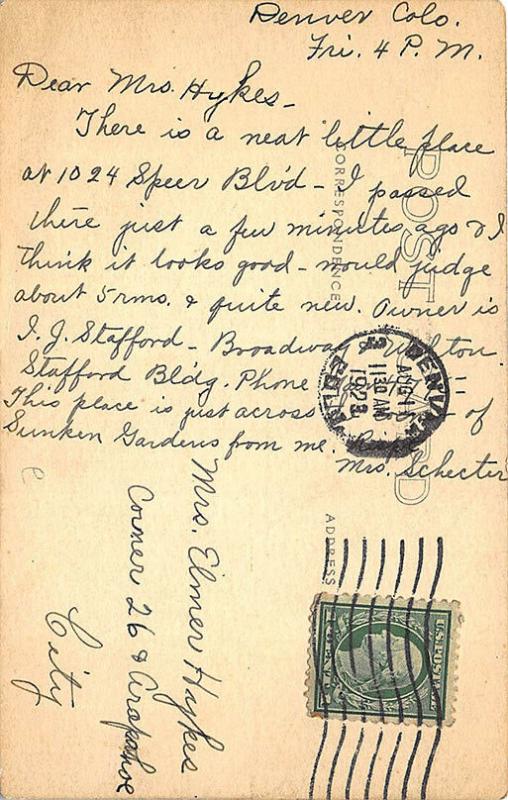 Denver Colo.
Fri. 4 P. M.
Dear Mrs. Hykes -
There is a neat little place
at 1024 Speer Blvd - I passed
there just a few minutes ago & I
think it looks good - would judge
about 5 rms. & quite new. Owner is
I. J. Stafford - Broadway
Stafford Bldg. Phone
This place is just across of
Sunken Gardens from me.
Mrs. Schecter
POST CARD
CORRESPONDENCE
ADDRESS
DENVER
COLO.
AUG 11
11 30 AM
1923
Mrs. Elmer Hykes
Corner 26 & Arapahoe
City
U.S. POSTAGE